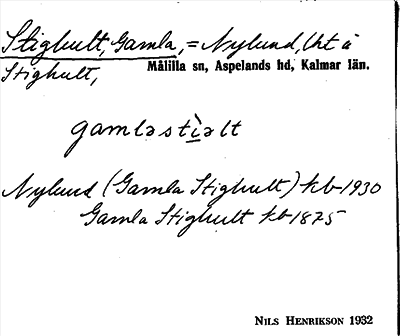 Stighult, Gamla, = Nylund, lht å
Stighult, Målilla sn, Aspelands hd, Kalmar län.
gamləstìəlt
Nylund (Gamla Stighult) kb 1930
Gamla Stighult kb 1875
NILS HENRIKSON 1932